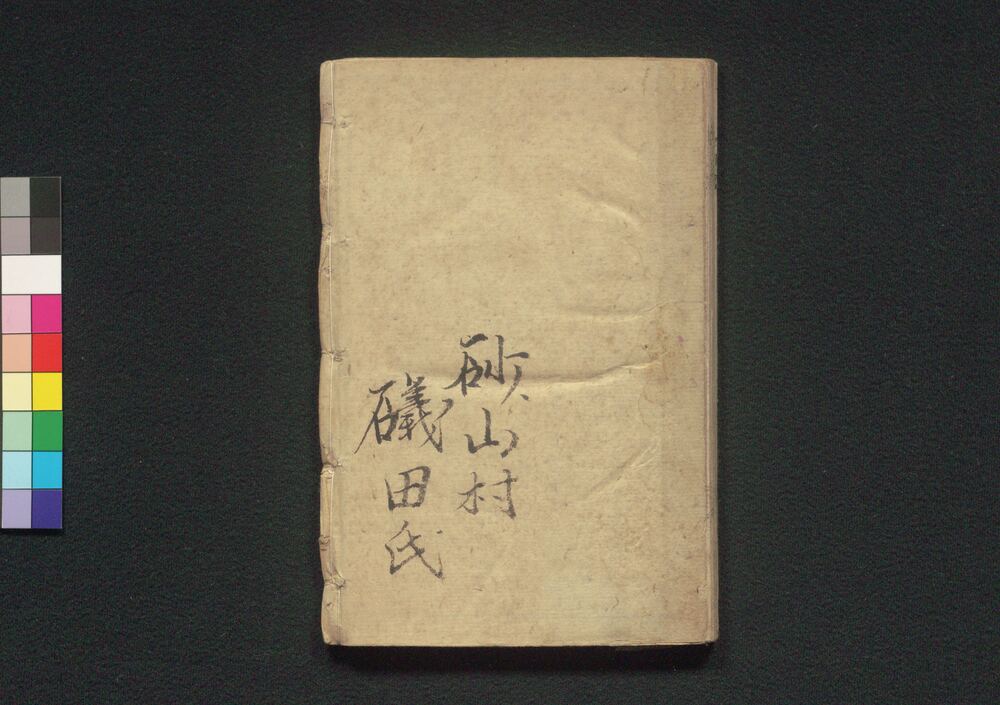 砂山村
礒田氏